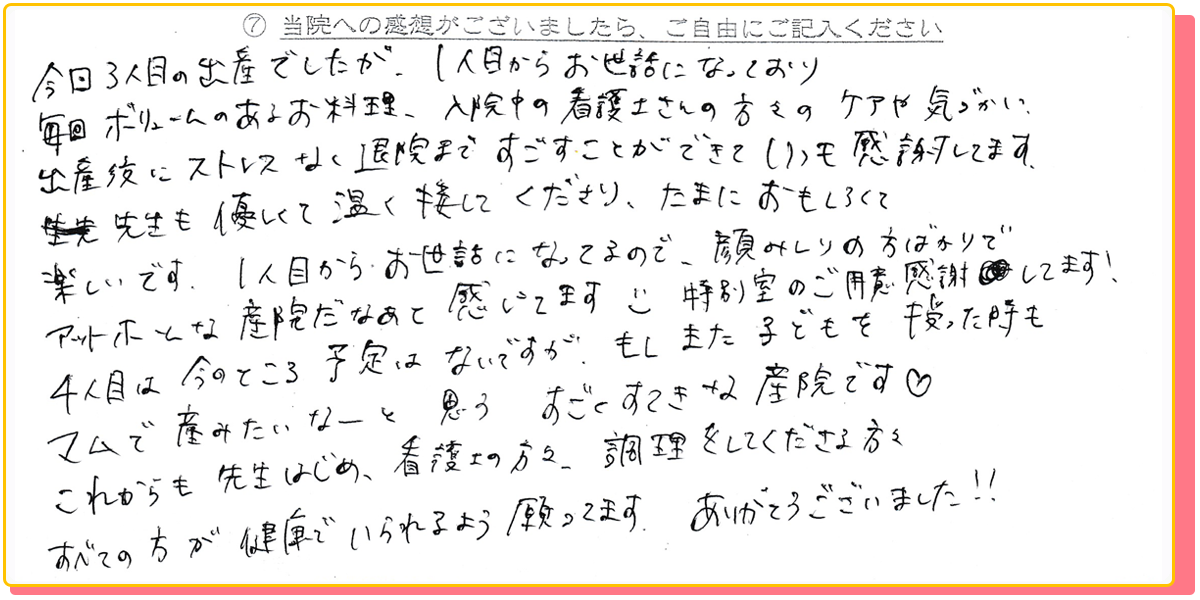 ⑦ 当院への感想がございましたら、ご自由にご記入ください
今回3人目の出産でしたが、1人目からお世話になっており
毎回ボリュームのあるお料理、入院中の看護士さんの方々のケアや気づかい、
出産後にストレスなく退院まですごすことができていつも感謝してます。
先生も優しくて温く接してくださり、たまにおもしろくて
楽しいです。1人目からお世話になってるので、顔みしりの方ばかりで
アットホームな産院だなあと感じてます 特別室のご用意感謝してます!
4人目は今のところ予定はないですが、もしまた子どもを授った時も
マムで産みたいなーと思う すごくすてきな産院です♡
これからも先生はじめ、看護士の方々、調理をしてくださる方々
すべての方が健康でいられるよう願ってます。ありがとうございました!!